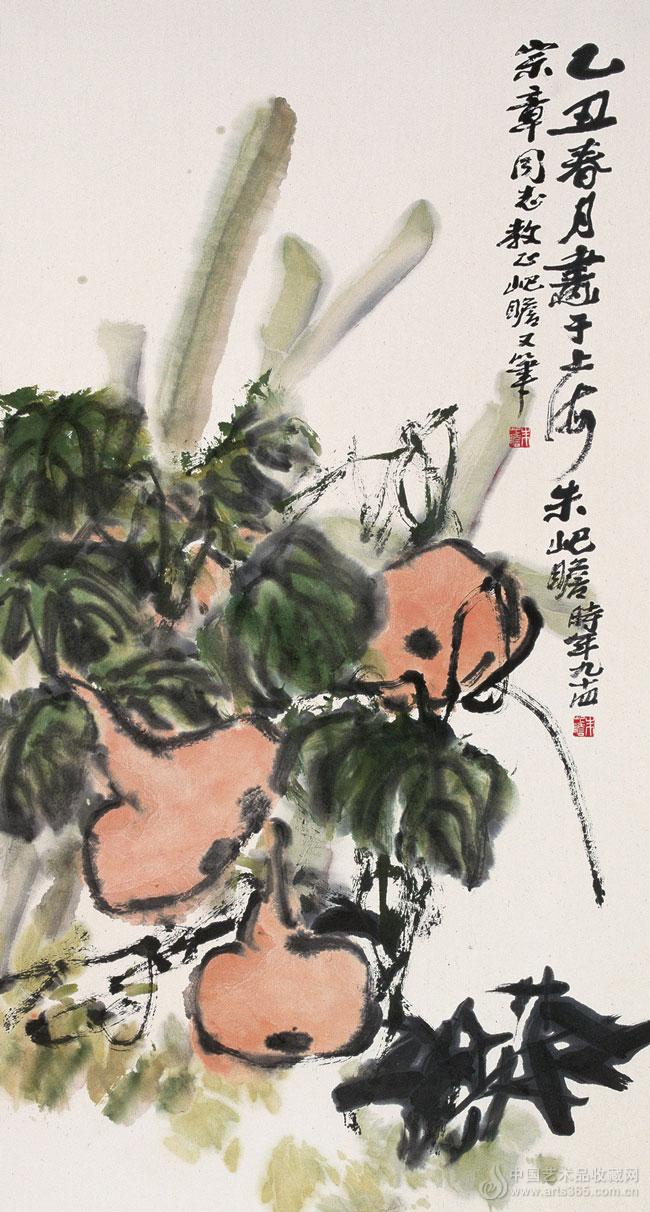 乙丑春月畫于上海 朱屺瞻 時年九十四
宗章同志教正 屺瞻又筆
中国艺术品收藏网
www.arts365.com.cn